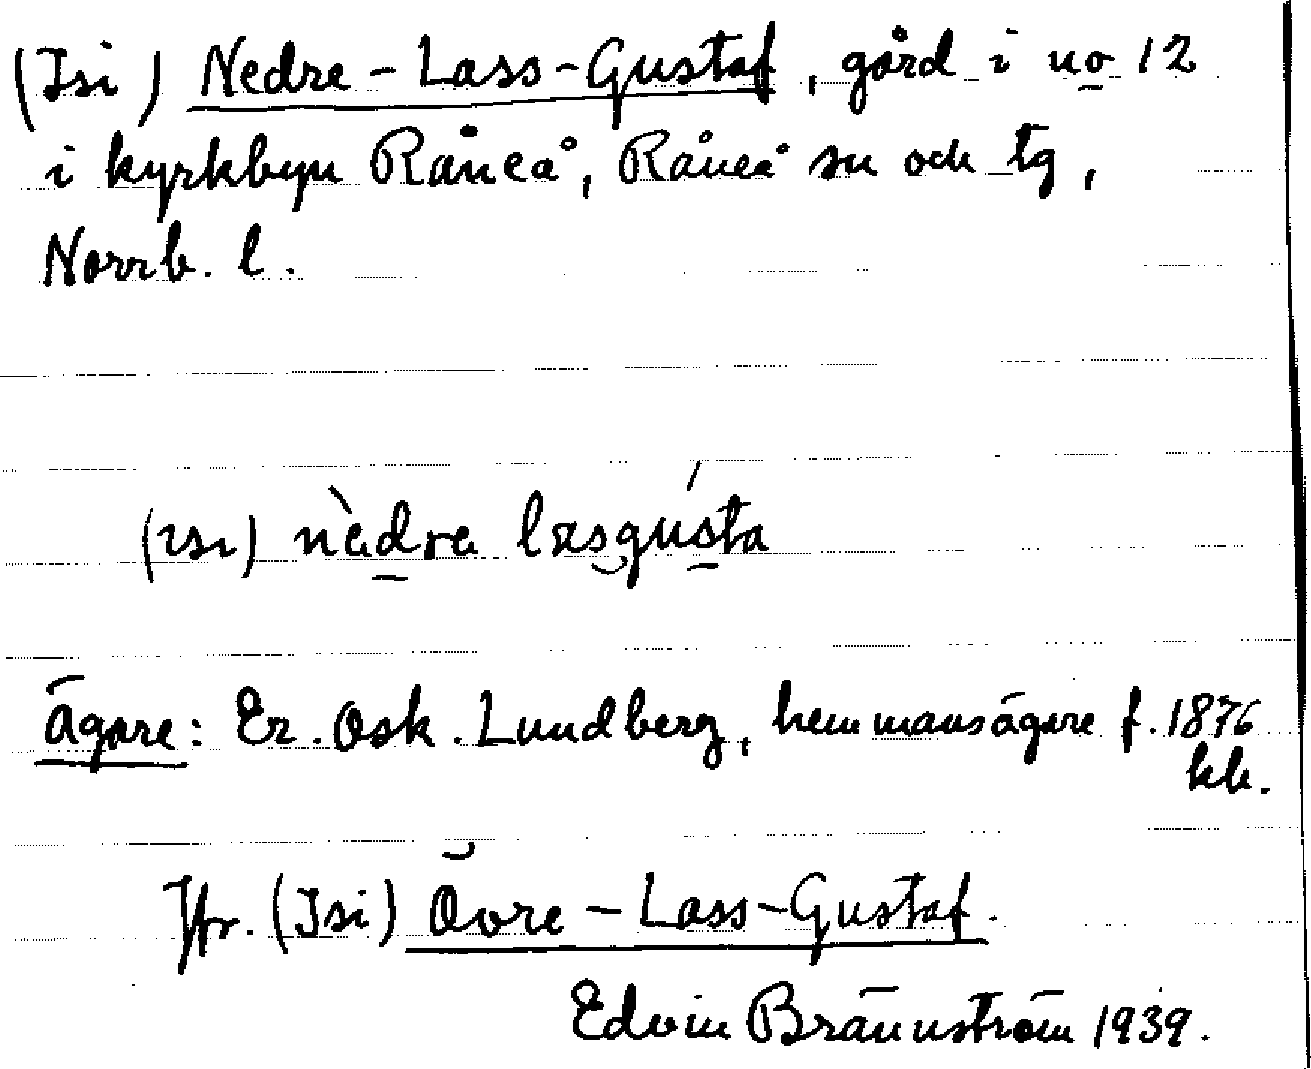 (Isi) Nedre-Lass-Gustaf, gård i no 12
i kyrkbyn Råneå, Råneå sn och tg,
Norrb. l.
(ısı) nèdre lasgústa
Ägare: Er. Osk. Lundberg, hemmansägare f. 1876
kb.
Jfr. (Isi) Övre-Lass-Gustaf.
Edvin Brännström 1939.